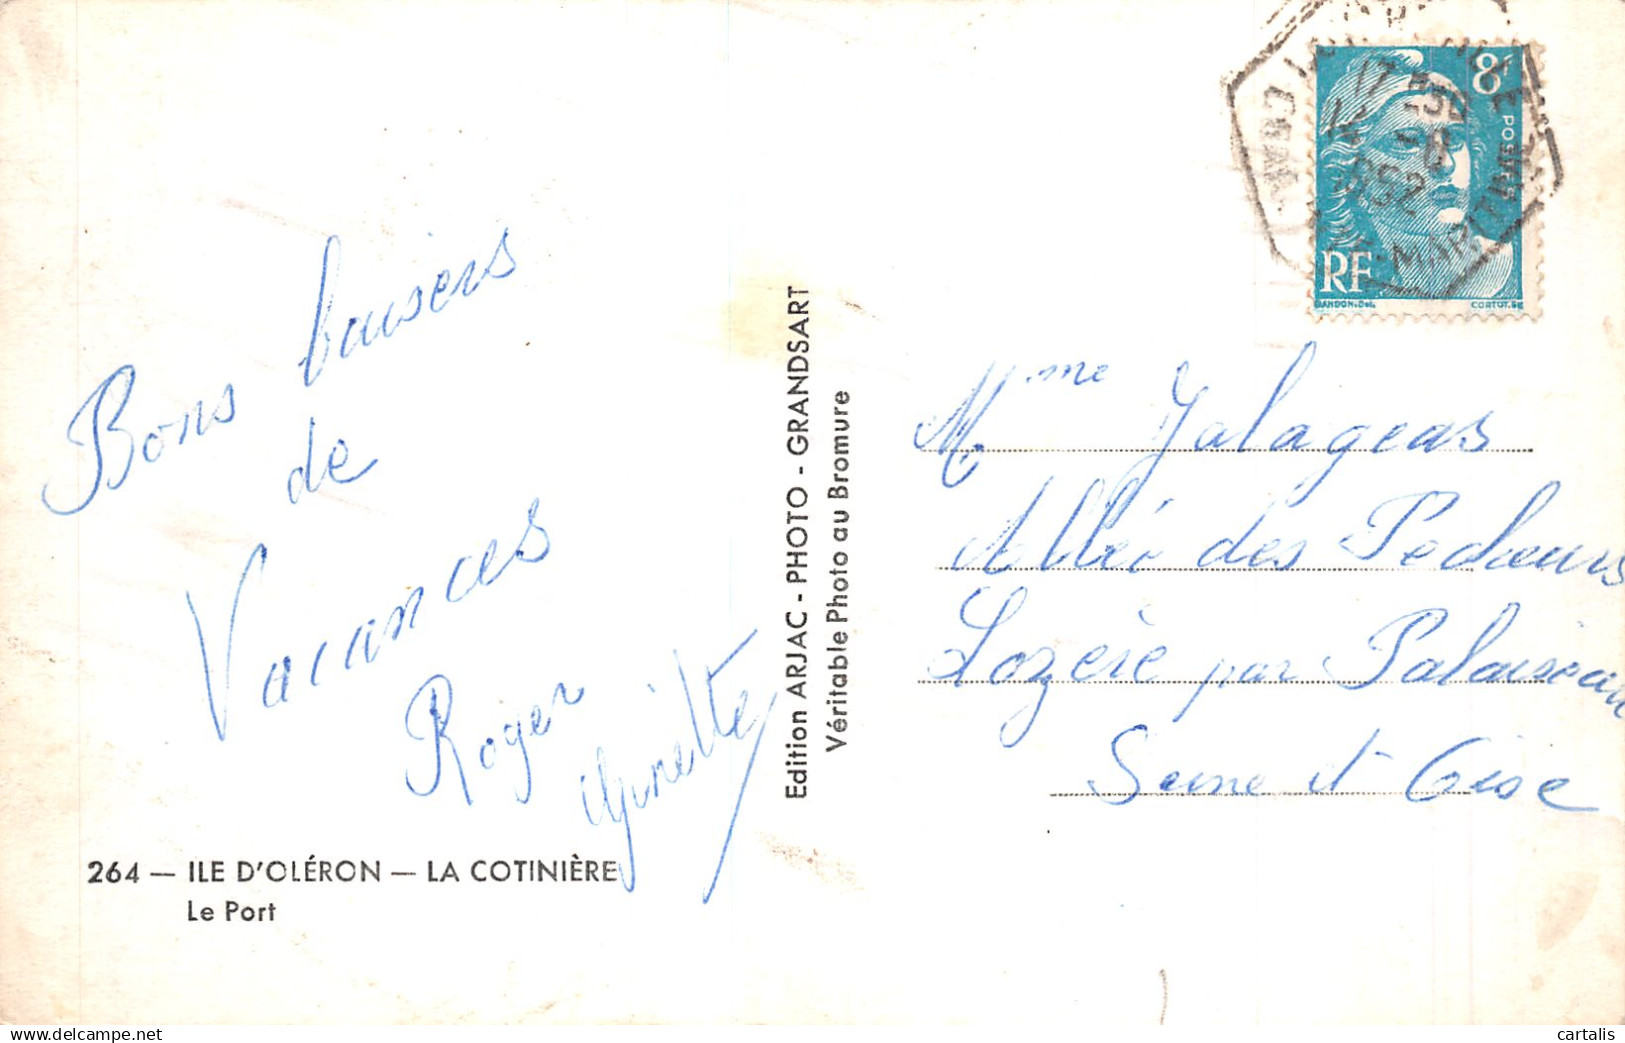 Bons baisers
de
Vacances
Roger
Ginette
264 — ILE D'OLÉRON — LA COTINIÈRE
Le Port
Edition ARJAC - PHOTO - GRANDSART
Véritable Photo au Bromure
8f
POSTES
RF
GANDON.Del.
CORTOT.SC
17 30
52
MARITIME
Mme Jalageas
Allée des Pêcheurs
Lozère par Palaiseau
Seine et Oise
cartalis